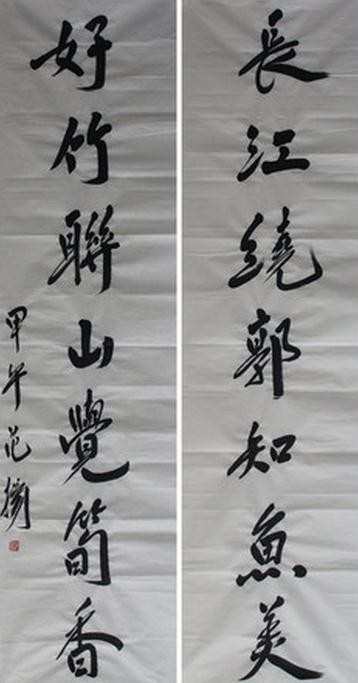 長江繞郭知魚美
好竹聯山覺筍香
甲午范